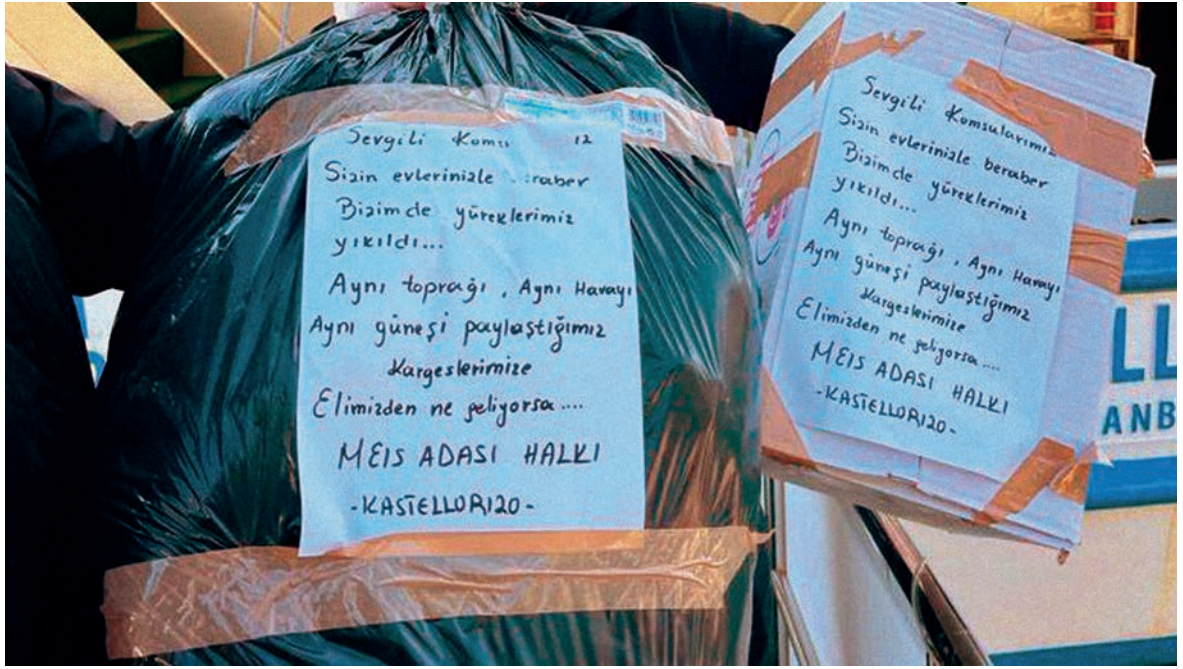 Sevgili Komsu ız
Sizin evlerinizle ..raber
Bizimde yüreklerimiz
yıkıldı...
Aynı toprağı, Aynı Havayı
Aynı güneşi paylaştığımız
Kargeslerimize
Elimizden ne geliyorsa....
MEIS ADASI HALKI
-KASTELLORIZO-
Sevgili Komsularımız
Sizin evlerinizle beraber
Bizimde yüreklerimiz
yıkıldı...
Aynı toprağı, Aynı Havayı
Aynı güneşi paylaştığımız
Kargeslerimize
Elimizden ne geliyorsa....
MEIS ADASI HALKI
-KASTELLORIZO-
LL
ANB